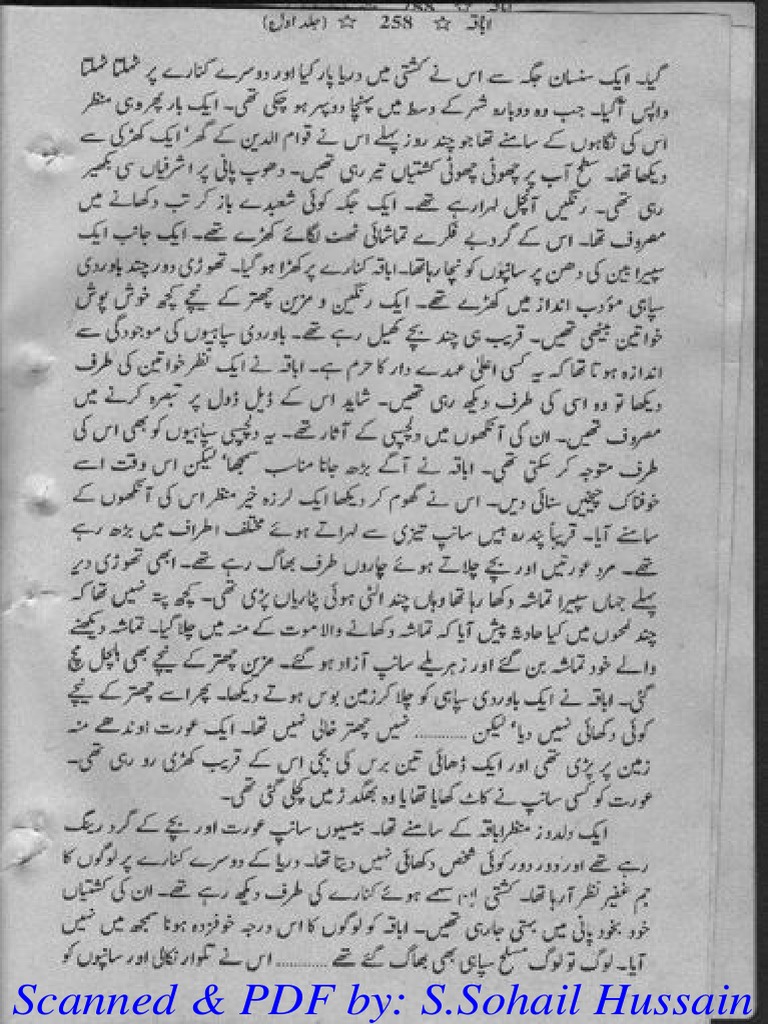 اباقہ ☆ 258 ☆ (جلد اول)
گیا۔ ایک سنسان جگہ سے اس نے کشتی میں دریا پار کیا اور دوسرے کنارے پر ٹہلتا ٹہلتا
واپس آ گیا۔ جب وہ دوبارہ شہر کے وسط میں پہنچا دوپہر ہو چکی تھی۔ ایک بار پھر وہی منظر
اس کی نگاہوں کے سامنے تھا جو چند روز پہلے اس نے قوام الدین کے گھر' ایک کھڑکی سے
دیکھا تھا۔ سطح آب پر چھوٹی چھوٹی کشتیاں تیر رہی تھیں۔ دھوپ پانی پر اشرفیاں سی بکھیر
رہی تھی۔ رنگین آنچل لہرا رہے تھے۔ ایک جگہ کوئی شعبدے باز کرتب دکھانے میں
مصروف تھا۔ اس کے گرد بے فکرے تماشائی ٹھٹ لگائے کھڑے تھے۔ ایک جانب ایک
سپیرا بین کی دھن پر سانپوں کو نچا رہا تھا۔ اباقہ کنارے پر کھڑا ہو گیا۔ تھوڑی دور چند باوردی
سپاہی مؤدب انداز میں کھڑے تھے۔ ایک رنگین و مزین چھتر کے نیچے کچھ خوش پوش
خواتین بیٹھی تھیں۔ قریب ہی چند بچے کھیل رہے تھے۔ باوردی سپاہیوں کی موجودگی سے
اندازہ ہوتا تھا کہ یہ کسی اعلیٰ عہدے دار کا حرم ہے۔ اباقہ نے ایک نظر خواتین کی طرف
دیکھا تو وہ اسی کی طرف دیکھ رہی تھیں۔ شاید اس کے ڈیل ڈول پر تبصرہ کرنے میں
مصروف تھیں۔ ان کی آنکھوں میں دلچسپی کے آثار تھے۔ یہ دلچسپی سپاہیوں کو بھی اس کی
طرف متوجہ کر سکتی تھی۔ اباقہ نے آگے بڑھ جانا مناسب سمجھا' لیکن اس وقت اسے
خوفناک چیخیں سنائی دیں۔ اس نے گھوم کر دیکھا ایک لرزہ خیز منظر اس کی آنکھوں کے
سامنے آیا۔ قریباً پندرہ بیس سانپ تیزی سے لہراتے ہوئے مختلف اطراف میں بڑھ رہے
تھے۔ مرد عورتیں اور بچے چلاتے ہوئے چاروں طرف بھاگ رہے تھے۔ ابھی تھوڑی دیر
پہلے جہاں سپیرا تماشہ دکھا رہا تھا وہاں چند الٹی ہوئی پٹاریاں پڑی تھی۔ کچھ پتہ نہیں تھا کہ
چند لمحوں میں کیا حادثہ پیش آیا کہ تماشہ دکھانے والا موت کے منہ میں چلا گیا۔ تماشہ دیکھنے
والے خود تماشہ بن گئے اور زہریلے سانپ آزاد ہو گئے۔ مزین چھتر کے نیچے بھی ہلچل مچ
گئی۔ اباقہ نے ایک باوردی سپاہی کو چلا کر زمین بوس ہوتے دیکھا۔ پھر اسے چھتر کے نیچے
کوئی دکھائی نہیں دیا' لیکن ............ نہیں چھتر خالی نہیں تھا۔ ایک عورت اوندھے منہ
زمین پر پڑی تھی اور ایک ڈھائی تین برس کی بچی اس کے قریب کھڑی رو رہی تھی۔
عورت کو کسی سانپ نے کاٹ کھایا تھا یا وہ بھگدڑ میں کچلی گئی تھی۔
ایک دلدوز منظر اباقہ کے سامنے تھا۔ بیسیوں سانپ عورت اور بچے کے گرد رینگ
رہے تھے اور دور دور کوئی شخص دکھائی نہیں دیتا تھا۔ دریا کے دوسرے کنارے پر لوگوں کا
جم غفیر نظر آ رہا تھا۔ کشتی سہمے ہوئے کنارے کی طرف دیکھ رہے تھے۔ ان کی کشتیاں
خود بخود پانی میں بہتی جا رہی تھیں۔ اباقہ کو لوگوں کا اس درجہ خوفزدہ ہونا سمجھ میں نہیں
آیا۔ لوگ تو لوگ مسلح سپاہی بھی بھاگ گئے تھے ............ اس نے تلوار نکالی اور سانپوں کو
Scanned & PDF by: S.Sohail Hussain